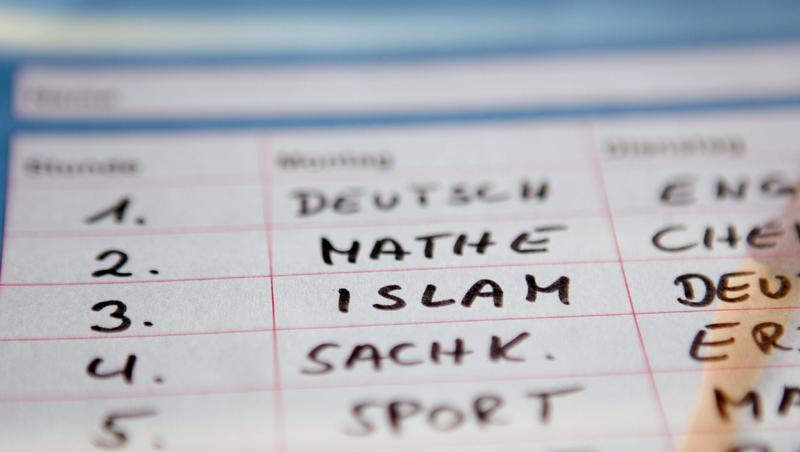 Name
Stunde Montag Dienstag
1. DEUTSCH ENG
2. MATHE CHE
3. ISLAM DEU
4. SACHK. ER
5. SPORT MA